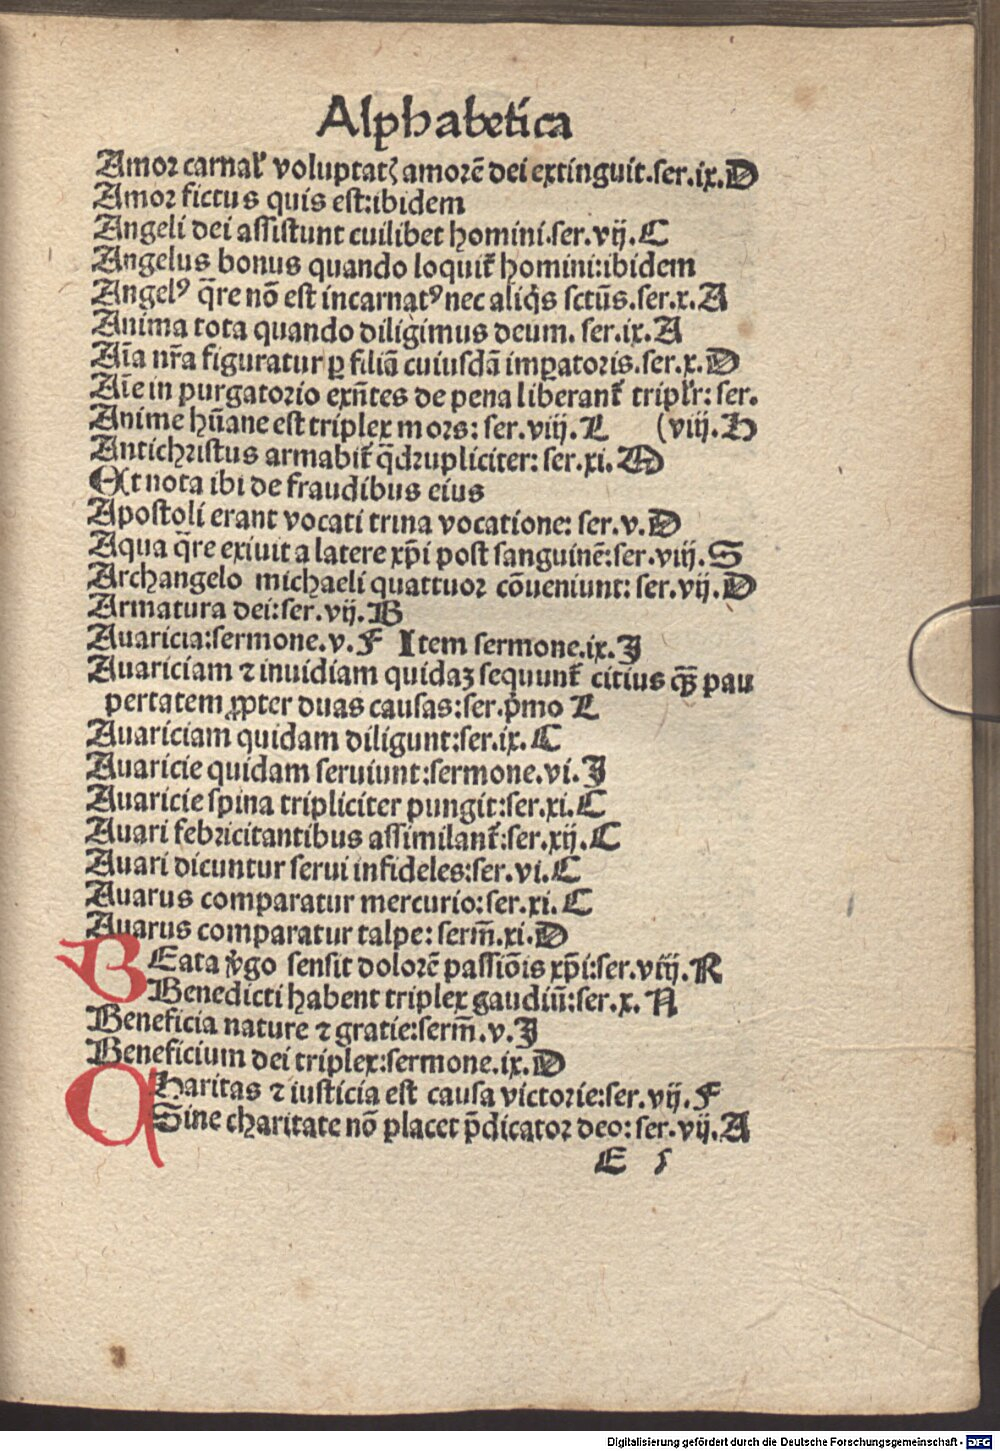 Alphabetica
Amor carnał voluptatꝭ amorē dei extinguit.ser.ix.D
Amor fictus quis est:ibidem
Angeli dei assistunt cuilibet homini.ser.vij.C
Angelus bonus quando loquit᷑ homini:ibidem
Angelꝰ q̄re nō est incarnatꝰ nec aliq̇s sctūs.ser.x.A
Anima tota quando diligimus deum. ser.ix.A
Aīa nr̄a figuratur ꝑ filiā cuiusdā imꝑatoris.ser.x.D
Aīe in purgatorio exñtes de pena liberant᷑ tripłr: ser.
Anime hūane est triplex mors: ser.viij.L (viij.H
Antichristus armabit᷑ q̄drupliciter: ser.xi.M
Et nota ibi de fraudibus eius
Apostoli erant vocati trina vocatione: ser.v.D
Aqua q̄re exiuit a latere xp̄i post sanguinē:ser.viij.S
Archangelo michaeli quattuor cōueniunt: ser.vij.D
Armatura dei:ser.vij.B
Auaricia:sermone.v.F Item sermone.ix.J
Auariciam ⁊ inuidiam quidaʒ sequunt᷑ citius qꝫ̄ pau
pertatem ꝓpter duas causas:ser.ṗmo L
Auariciam quidam diligunt:ser.ix.C
Auaricie quidam seruiunt:sermone.vi.J
Auaricie spina tripliciter pungit:ser.xi.C
Auari febricitantibus assimilant᷑:ser.xij.C
Auari dicuntur serui infideles:ser.vi.C
Auarus comparatur mercurio:ser.xi.C
Auarus comparatur talpe: serm̄.xi.D
BEata v̇go sensit dolorē passiōis xp̄i:ser.viij.R
Benedicti habent triplex gaudiū:ser.x.N
Beneficia nature ⁊ gratie:serm̄.v.J
Beneficium dei triplex:sermone.ix.D
CHaritas ⁊ iusticia est causa victorie:ser.vij.F
Sine charitate nō placet p̄dicator deo: ser.vij.A
E s
Digitalisierung gefördert durch die Deutsche Forschungsgemeinschaft - DFG